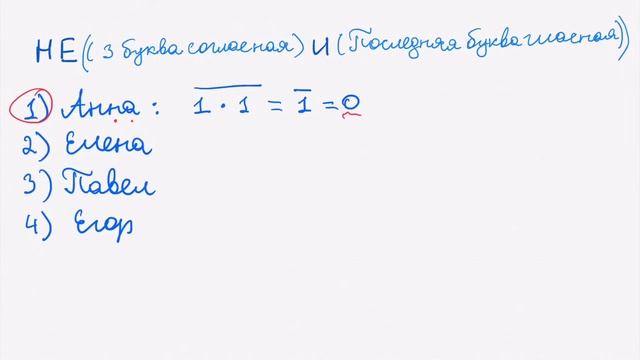 НЕ((3 буква согласная) И (Последняя буква гласная))
1) Анна: \overline{1 · 1} = \overline{1} = 0
2) Елена
3) Павел
4) Егор